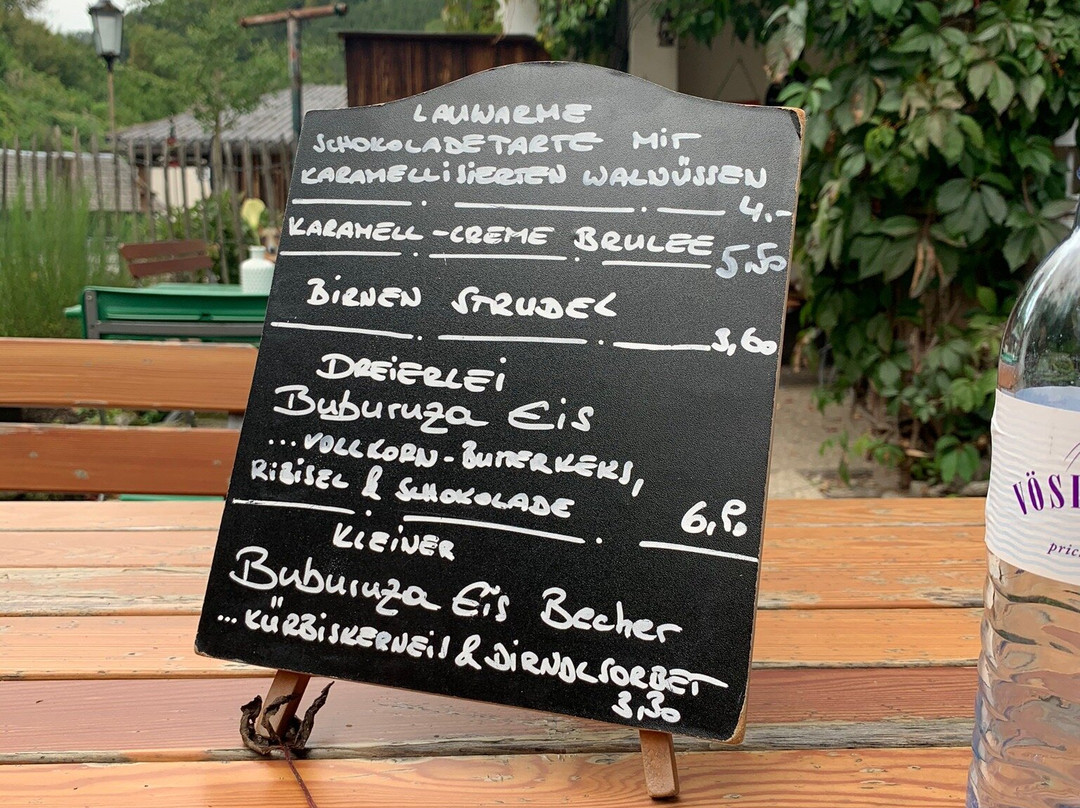 LAUWARME
SCHOKOLADETARTE MIT
KARAMELLISIERTEN WALNÜSSEN
4.-
KARAMELL-CREME BRULEE
5,50
BIRNEN STRUDEL
3,60
DREIERLEI
Buburuza Eis
...VOLLKORN-BUTTERKEKS,
RIBISEL & SCHOKOLADE
KLEINER
Buburuza Eis Becher
...KÜRBISKERNEIS & DIRNDLSORBET
3,30
VÖSL